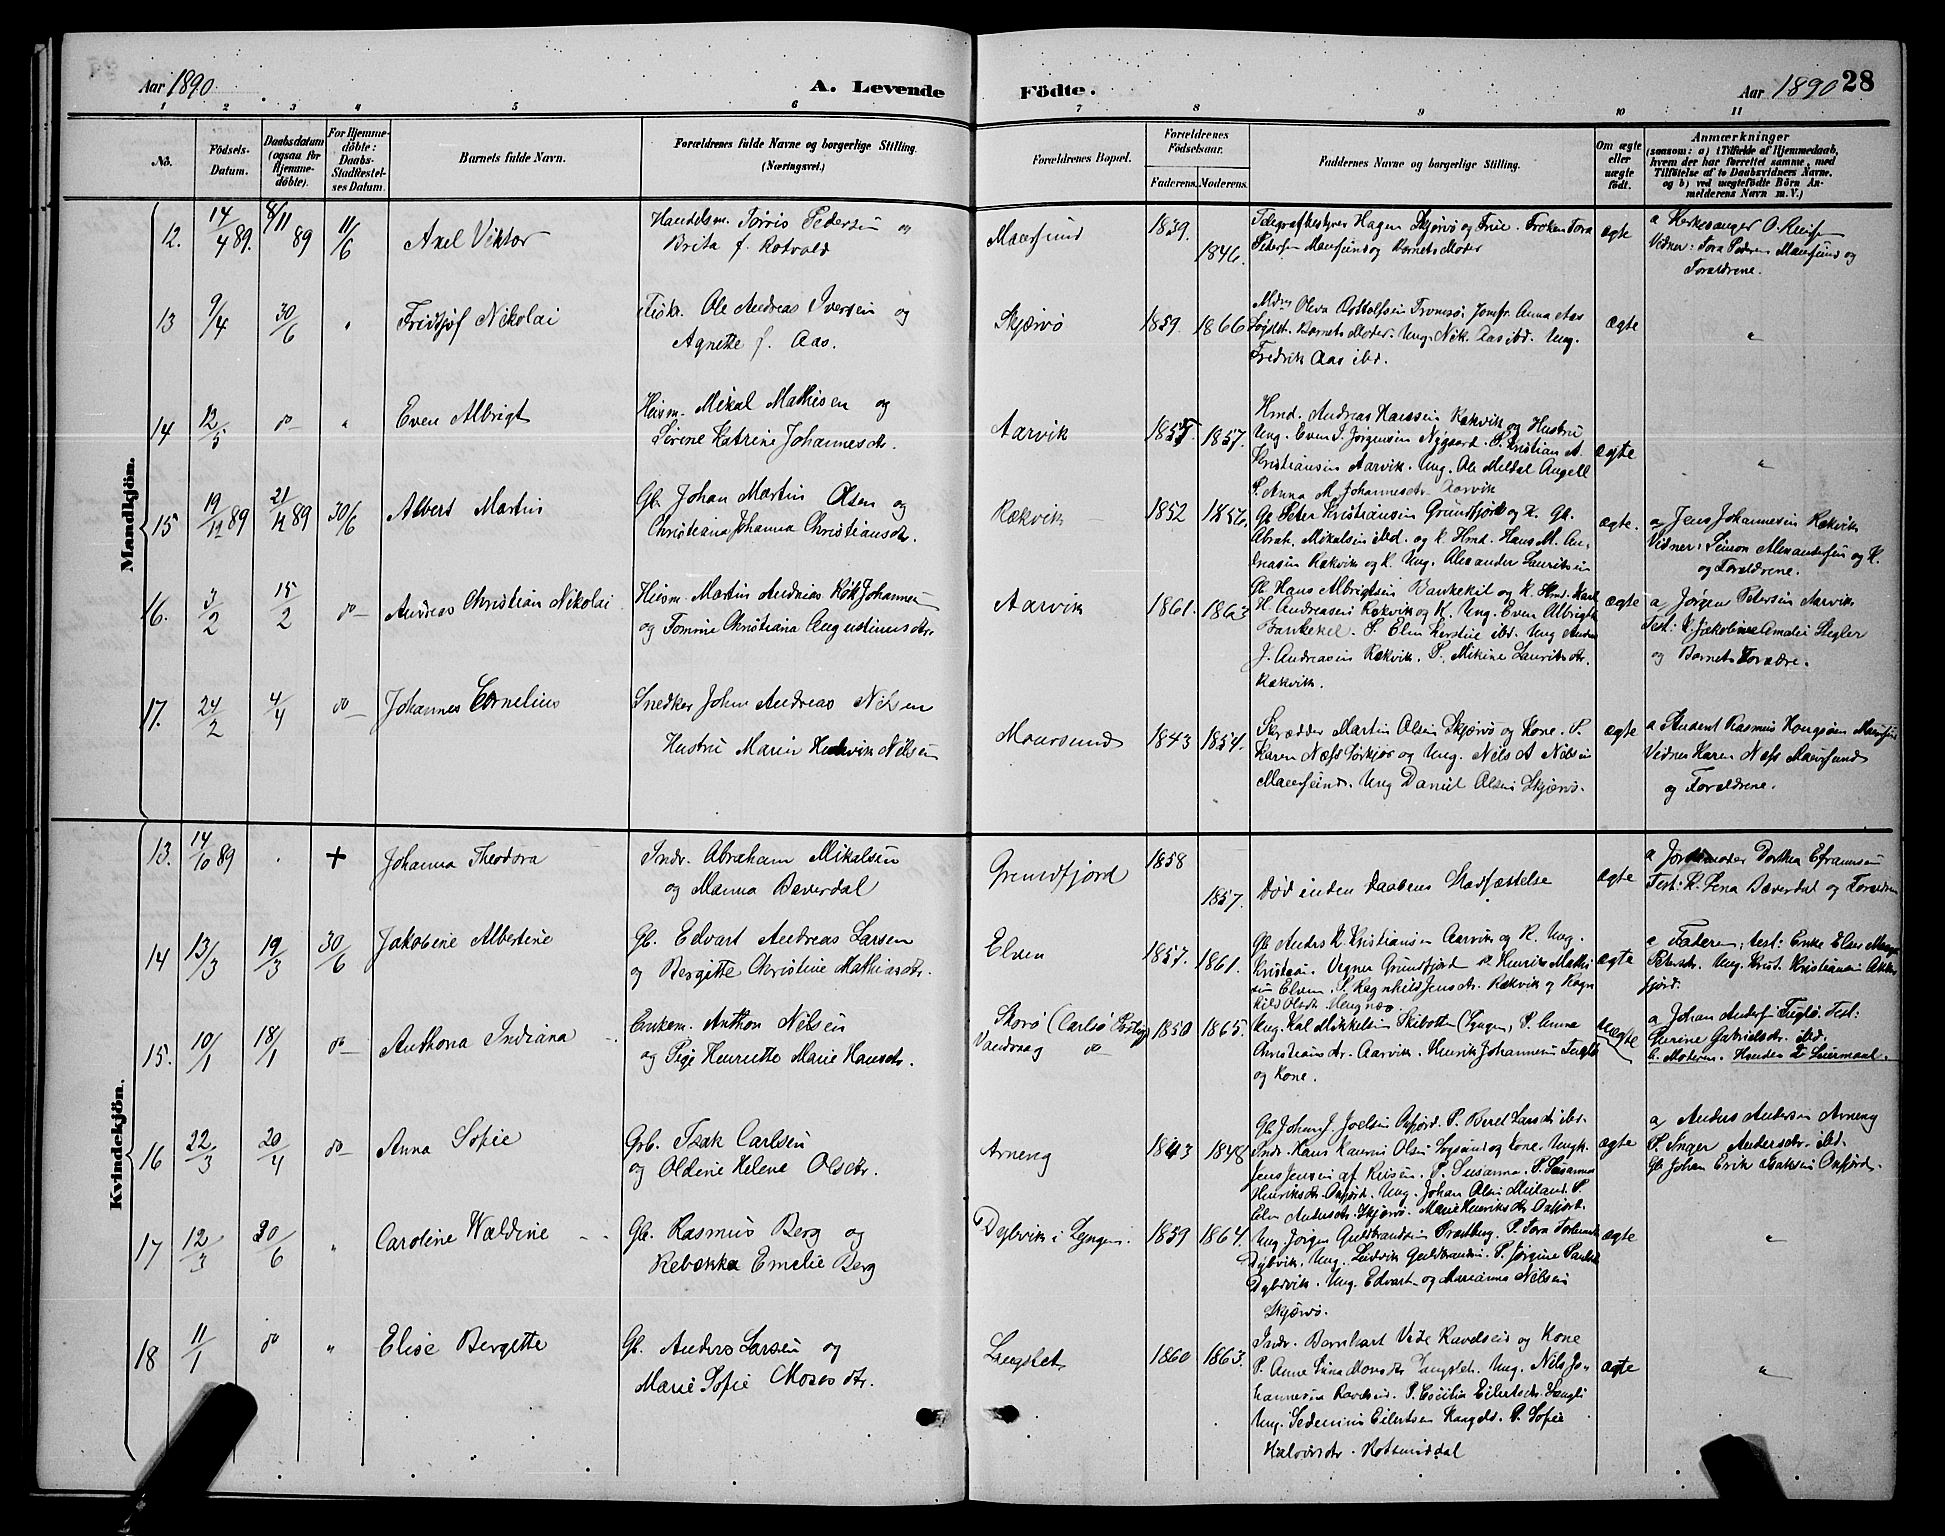 Aar 1890 A. Levende Födte. Aar 1890 28
1 2 3 4 5 6 7 8 9 10 11
No. Födsels-Datum. Daabsdatum (ogsaa for Hjemmedöbte). For Hjemmedöbte: Daabs-Stadfæstelses Datum. Barnets fulde Navn. Forældrenes fulde Navne og borgerlige Stilling. (Næringsvei.) Forældrenes Bopæl. Forældrenes Födselsaar. Faderens. Moderens. Faddernes Navne og borgerlige Stilling. Om ægte eller uægte födt. Anmærkninger (saasom: a) i Tilfælde af Hjemmedaab, hvem der har forrettet samme, med Tilföielse af to Daabsvidners Navne, og b) ved uægtefödte Börn Anmelderens Navn m. V.)
Mandkjön.
12. 14/4 89. 8/11 89 11/6 Axel Viktor
Handelsm. Jörris Pedersen og
Brita f. Rotvold
Maursund 1839. 1846.
Telegrafbestyrer Hagen Skjervö og Frue. Fröken Tora
Petersen Maursund og Barnets Moder
ægte
a Kirkesanger O.
Vidner: Tora Pedersen Maursund og
Forældrene.
13 9/4 30/6 " Fridtjof Nikolai
Fisker Ole Andreas Iversen og
Agnethe f. Aas.
Skjærvö 1859. 1866
Oliva Tromsö. Jomfr. Anna Aas
Barnets Moder. Ung. Nik. Aas ibd. Ung.
Fredrik Aas ibd.
ægte "
14 12/5 do " Even Albrigt
Huusm. Mikal Mathisen og
Serene Katrine Johannesdr.
Aarvik 1855. 1857.
Hmd. Andreas Hanssen Rækvik og Hustru
Ung. Even J. Jörgensen Nygaard. P. Kristian A.
Kristiansen Aarvik. Ung. Ole Meldal Angell
P. Anna M. Johannesdr. Aarvik
ægte "
15 19/12 89 21/12 89 30/6 Albert Martin
Gb. Johan Martin Olsen og
Christiana Johanna Christiansdr.
Rækvik 1852 1856.
Gb Peter Kristiansen Grundfjord og K. Gb.
Abrah. Mikalsen ibd. og K. Hmd. Hans M. An-
dreasen Rækvik og K. Ung. Alexander Lauritsen
ægte.
a Jens Johannesen Rækvik
Vidner: Simon Alexandersen og K.
og Forældrene.
16. 3/2 15/2 do Andreas Christian Nikolai
Huusm. Martin Andreas Johannesen
og Tomine Christiana Augustinusdr.
Aarvik 1861. 1863
Gb Hans Albrigtsen Bankekil og K. Hmd. Karl
H. Andreasen Rækvik og K. Ung. Even Albrigts
Bankekel. P. Elen Kerstine ibd. Ung Anders
J. Andreasen Rækvik. P. Mikine Lauritsdr.
Rækvik.
ægte
a Jörgen Petersen Aarvik
Test: K. Jakobine Amalie Stegler
og Barnets Forældre.
17. 24/2 4/4 do Johannes Cornelius
Snedker John Andreas Nilsen
Hustru Maren Hedevik Nilsen
Maursund 1843 1854.
Skrædder Martin Olsen Skjærvö og Kone. P.
Karen Næss Lökkjær og Ung. Nils A Nilsen
Maursund. Ung Daniel Olsen Skjærvö.
ægte
a Student Rasmus Maursund
Vidner Karen Næss Maursund
og Forældrene.
Kvindekjön.
13. 14/10 89 . + Johanna Theodora
Indr. Abraham Mikalsen
og Manna Bæverdal
Grundfjord 1858 1857.
Död inden Daabens Stadfæstelse
ægte
a Jordmoder Dorthea Efraimsen
Test: K. Lena Bæverdal og Forældrene
14 13/3 19/3 30/6 Jakobine Albertine
Gb. Edvart Andreas Larsen
og Bergitte Christine Mathiasdr.
Elven 1857. 1861.
Gb Anders K. Kristiansen Aarvik og K. Ung.
Kristian Vegner Grundfjord Henrik Mathi
sen Elven. P. Ragnhild Jensdr. Rækvik og Ragn
hild Olsdr.
ægte
a Faderen; test: Enke Elen
Petersdr. Ung. Krist. Kristiansen
fjord.
15. 10/1 18/1 do Anthona Indiana
Enkem. Anthon Nilsen
og Pige Henriette Marie Hansdr.
Skorö (Carlsö
Vandvaag do 1850 1865.
Ung. Kal Mikkelsen Skibotten (Lyngen) P. Anna
Christiansdr. Aarvik. Henrik Johannesen Fuglö
og Kone.
uægte
a Johan Anders. Fuglö. Test:
Gurine Gabrielsdr. ibd.
b. Moderen. Hendes 2 Leiermaal.
16 22/3 20/4 do Anna Sofie
Gb. Isak Carlsen
og Oldine Helene Olsdr.
Arneng 1843 1848
Gb Johan J. Joelsen Oxfjord. P. Berel Larsdr ibd.
Indr. Hans Olsen og Kone. Ungk.
Jens Jensen af Reisen. P. Susanna. P. Susanna
Henriksdr. Oxfjord. Ung. Johan Olsen Meiland. P.
Elen Andersdr. Skjervö. Marie Henriksdr Oxfjord.
ægte
a Anders Andersen Arneng
P. Inger Andersdr. ibd.
Gb Johan Erik Isaksen Oxfjord.
17 12/3 30/6 " Caroline Waldine
Gb. Rasmus Berg og
Rebekka Emelie Berg
Dybvik i Lyngen. 1859 1864.
Ung. Jörgen Guldbrandsen P. Tora
Dybvik. Ung. Ludvik Guldbrandsen. P. Jörgine
Dybdvik. Ung. Edvart og Marianna Nilsen
Skjærvö.
ægte "
18 11/1 do " Elise Bergitte
Gb. Anders Larsen og
Marie Sofie Mosesdtr.
Langslet 1860 1863.
Indr. Bernhart Vide Ravelseid og Kone
P. Anne Lina Monsdr Langslet. Ung. Nils Jo-
hannesen Ravelseid. P. Cecilia Eilertsdr. Langsl
Ung. Sedenius Eilertsen P. Sofie
Halvorsdr. Rotsunddal
ægte "